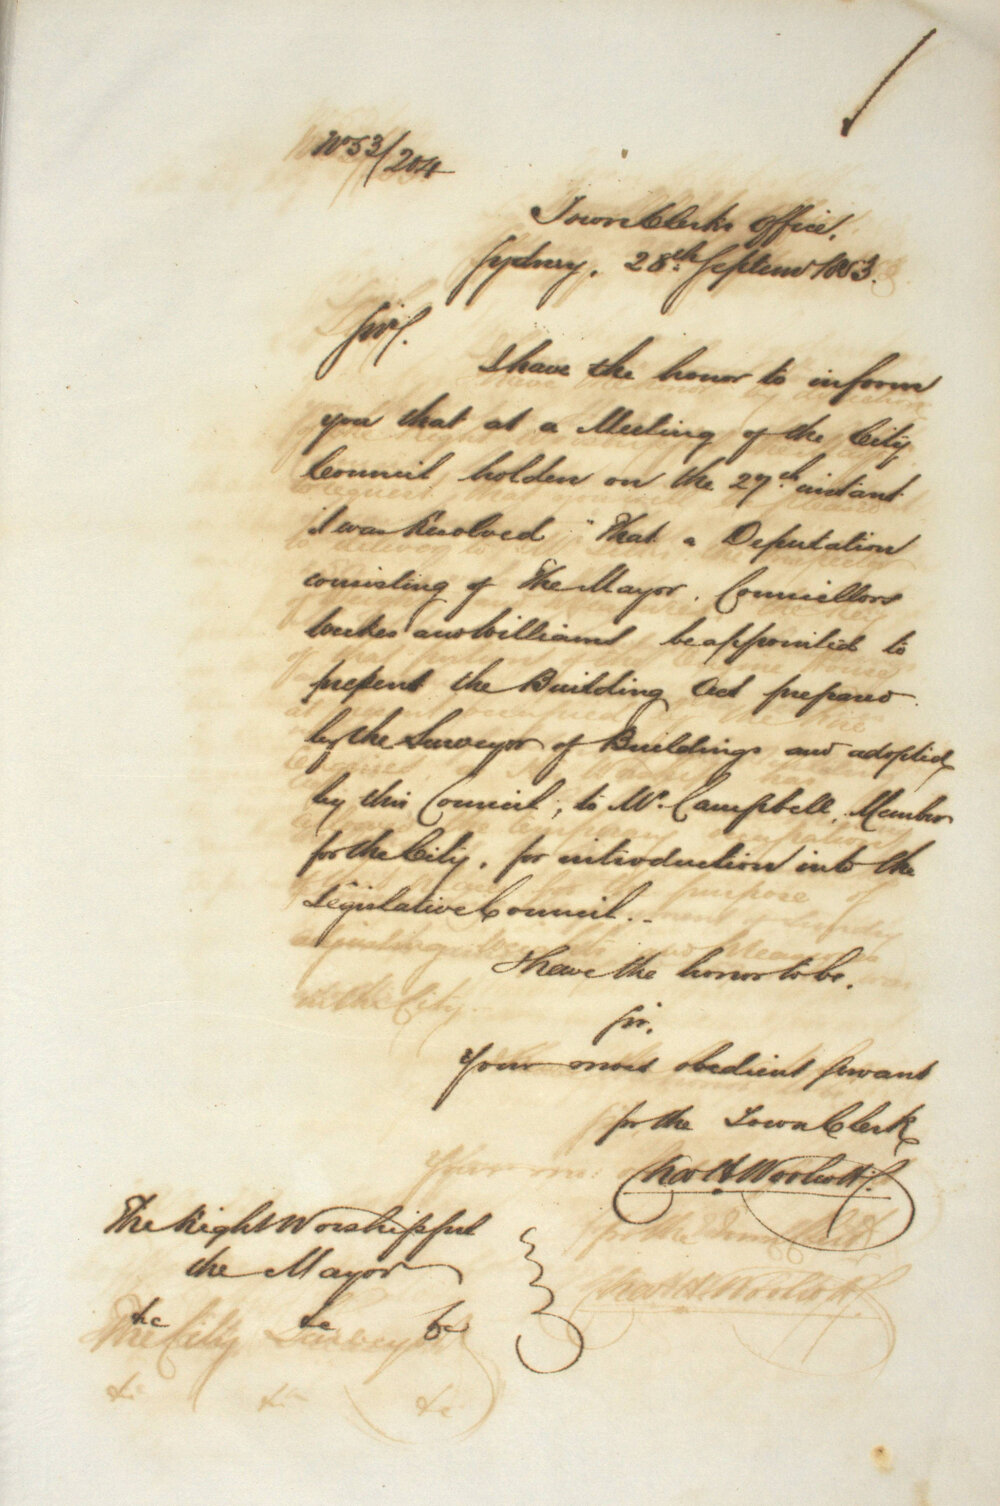 No 53/204
Town Clerks Office,
Sydney, 28th Septemr 1853.
Sir,
I have the honor to inform
you that at a Meeting of the City
Council holden on the 27th instant
it was Resolved "That a Deputation
consisting of The Mayor, Councillors
Weekes and Williams be appointed to
present the Building Act prepared
by the Surveyor of Buildings and adopted
by this Council, to Mr. Campbell, Member
for the City, for introduction into the
Legislative Council. _
I have the honor to be,
Sir,
Your most obedient Servant
for the Town Clerk
Chas H Woolcott.
The Right Worshipful
the Mayor
&c &c &c
in the City
Your mo:
for the Town Clerk
Chas H Woolcott
The City Surveyor
&c &c &c